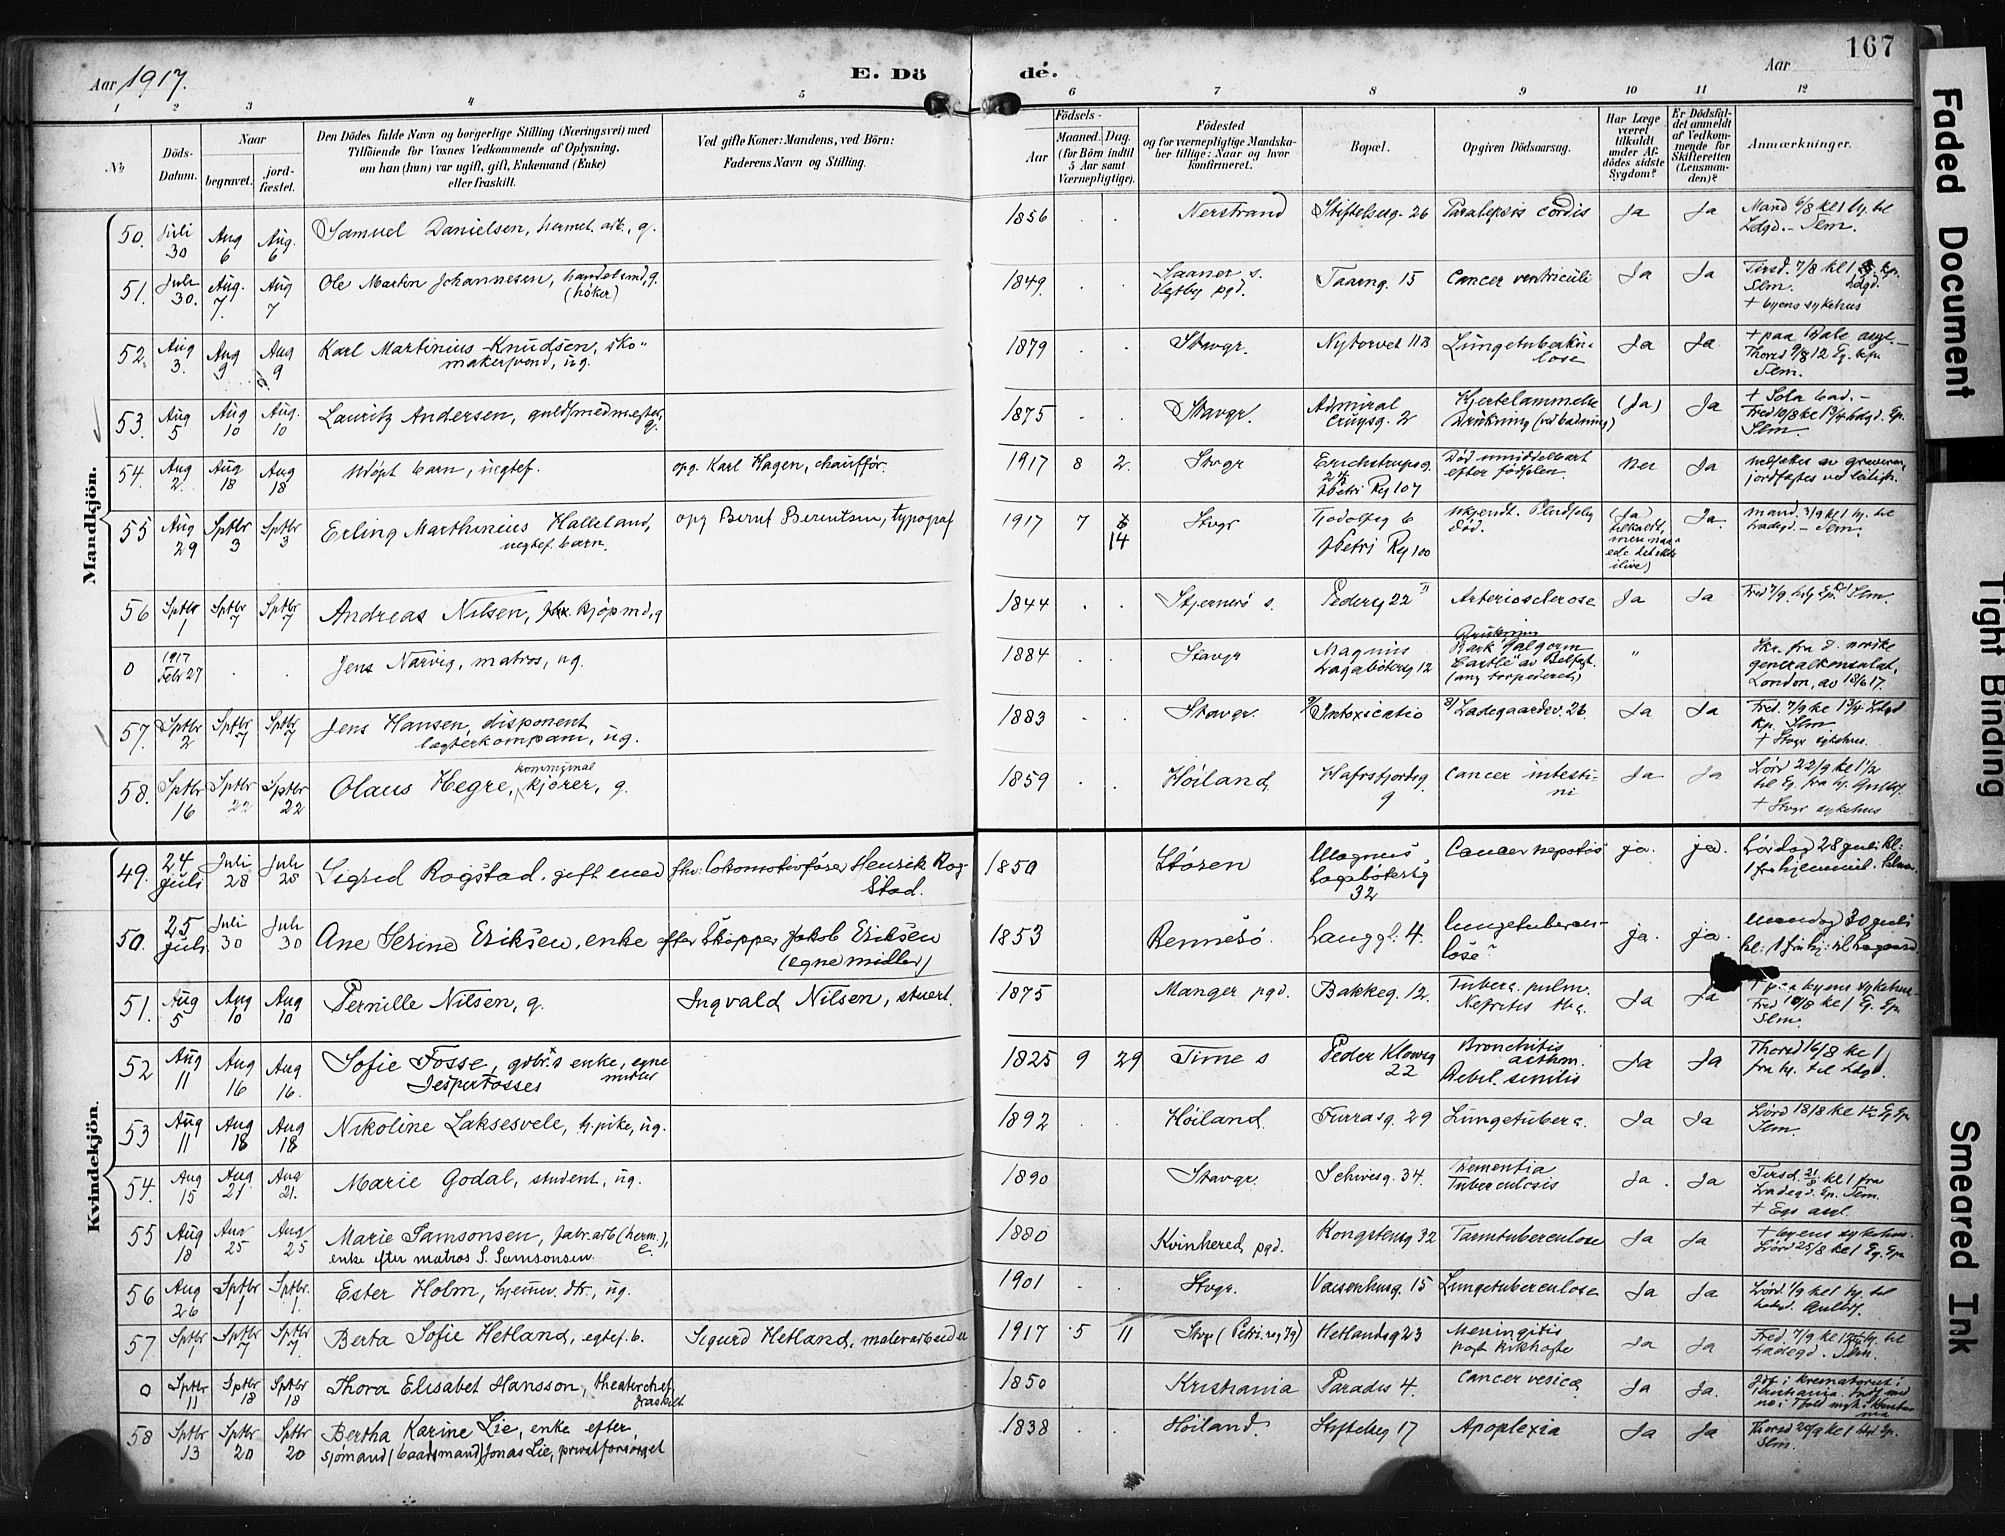 167
Aar 1917.
E. Döde.
Aar
1 2 3 4 5 6 7 8 9 10 11 12
No.
Döds-Datum.
Naar
begravet.
jord-fæstet.
Den Dödes fulde Navn og borgerlige Stilling (Næringsvei) med
Tilföiende for Voxnes Vedkommende af Oplysning,
om han (hun) var ugift, gift, Enkemand (Enke)
eller fraskilt.
Ved gifte Koner: Mandens, ved Börn:
Faderens Navn og Stilling.
Födsels-
Aar
Maaned. Dag.
(for Börn indtil
5 Aar samt
Værnepligtige).
Födested
og for værnepligtige Mandska-
ber tillige: Naar og hvor
konfirmeret.
Bopæl.
Opgiven Dödsaarsag.
Har Læge
været
tilkaldt
under Af-
dödes sidste
Sygdom?
Er Dödsfal-
det anmeldt
af Vedkom-
mende for
Skifteretten
(Lensman-
den)?
Anmærkninger.
Mandkjön.
50. Juli 30 Aug 6 Aug. 6 Samuel Danielsen, hermet. arb., g. 1856 . . Nerstrand Stiftelsesg. 26 Paralysis cordis Ja Ja Mand 6/8 kl 1 hj. til
Ldgd. – Slm.
51. Juli 30. Aug. 7. Aug 7 Ole Martin Johannesen, handelsmd, g.
(höker) 1849. . . Vestby pgd. Taarng. 15 Cancer ventriculi Ja Ja Tirsd. 7/8 kl 1 kp.
Slm. Ldgd.
+ byens sykehus
52. Aug 3. Aug 9 Aug 9 Karl Martinius Knudsen, sko-
makersvend, ug. 1879 . . Stavgr. Nytorvet 11B Lungetuberku-
lose Ja Ja + paa Bale asyl. –
Thorsd 9/8 12 Eg. kp.
Slm.
53. Aug 5 Aug 10 Aug. 10 Lauritz Andersen, guldsmedmester,
g. 1875 . . Stavgr. Admiral
Cruysg. 2 Hjertelammelse
Drukning (ved badning) (Ja) Ja + Sola bad. –
Fred 10/8 kl 1 3/4 Ldgd. Gp.
Slm.
54. Aug 2. Aug 18 Aug 18 udöpt barn, uegtef. opg. Karl Hagen, chaufför. 1917 8 2. Stvgr Erichstrupsg.
24
St Petri Reg 107 Död umiddelbart
efter födselen. nei Ja nedsattes av graveren,
jordfæstes ved leiligh.
55 Aug 29 Sptbr 3 Sptbr 3 Erling Marthinius Halleland,
uegtef. barn. opg Bernt Berentsen, typograf 1917 7 14 Stvgr Tjodolfsg 6
St Petri Reg 100 ukjendt. Pludselig
död. (Ja)
tilkaldt,
men naa-
ede det ikke
ilive) Ja. mand. 3/9 kl 1 hj. til
Ladegd. – Slm.
56 Sptbr 1 Sptbr 7 Sptbr 7 Andreas Nilsen, fhv. kjöpmd, g 1844 . . Stjernerö s. Pedersg 22 II Arteriosclerose Ja Ja Fred 7/9. Slm.
0 1917 Febr 27 . . Jens Narvig, matros, ug. 1884 . . Stavgr Magnus
Lagabötersg 12 Drukning
Bark "Galgorm
Castle" av Belfast.
(ang torpederet) " Skr. fra d. norske
generalkonsulat,
London, av 18/6 17.
57. Sptbr 2 Sptbr 7 Sptbr 7 Jens Hansen, disponent
lægterkompani, ug. 1883 . . Stavgr. Intoxicatio Ladegaardsv. 26. Ja Ja Fred. 7/9 kl 1 3/4 Ldgd
kp. Slm
+ Stvgr sykehus.
58. Sptbr 16 Sptbr 22 Sptbr 22 Olaus Hegre, kommunal kjörer, g. 1859 . . Höiland Hafrsfjordsg
9 Cancer intesti-
ni Ja Ja Lörd 22/9 kl 1 1/2
til Eg. fra hj.
+ Stvgr sykehus
Kvindekjön.
49. 24 Juli Juli 28 Juli 28 Sigrid Rogstad, gift med fhv. Lokomotivförer Henrik Rog-
stad. 1850 Stören Magnus
Lagabötersg
32 Cancer hepatis ja. ja. Lördag 28 juli kl:
1 fra hjemmet.
50. 25 Juli Juli 30 Juli 30 Ane Serine Eriksen, enke efter Skipper Jakob Eriksen
(egne midler) 1853 Rennesö. Langgt. 4. Lungetuberku-
lose ja. ja. Mandag 30 juli
kl: 1 fra hj: til Lagaard
51. Aug 5 Aug 10 Aug 10 Pernille Nilsen, g. Ingvald Nilsen, stuert. 1875 . . Manger pgd. Bakkeg. 12. Tuberc. pulm.
Nefritis tbc. Ja Ja + paa byens sykehus
Fred 10/8 kl 1 Eg. Gp.
Slm.
52 Aug 11 Aug 16 Aug 16. Sofie Fosse, gdbr.s enke, egne
Jesper Fosses midler 1825 9 29 Time s Peder Klowsg
22 Bronchitis
asthm.
Debil. senilis Ja Ja Thorsd 16/8 kl 1
fra hj. til Ldgd.
53 Aug 11 Aug 18 Aug 18 Nikoline Laksesvele, h. pike, ug. 1892 . . Höiland Furrasg. 29 Lungetuberc. Ja Ja Lörd 18/8 kl 1 1/2 Eg Gp
Slm.
54. Aug 15 Aug 21 Aug 21. Marie Godal, student, ug. 1890 Stavgr. Schivesg. 34. Dementia
Tuberculosis Ja . Ja Tirsd. 21/8 kl 1 fra
Ladegd. Gp. Slm.
+ Egs asyl.
55 Aug 18 Aug 25 Aug 25 Marie Samsonsen, fabr. arb (herm.),
enke efter matros S. Samsonsen. E. 1880 Kvinhered pgd. Kongstensg 32 Tarmtuberculose Ja Ja + byens sykehus.
Lörd 25/8 kl 1 Eg. Gp.
56 Aug 26 Sptbr 1 Sptbr. 1. Ester Holm, hjemmev. dtr., ug. 1901 . . Stvgr. Vaisenhusg. 15 Lungetuberculose Ja Ja Lörd. 1/9 kl 1 hj. til
Ladegd.
57. Sptbr 1 Sptbr 7 Sptbr 7. Berta Sofie Hetland, egtef. b. Sigurd Hetland, malerarbeider 1917 5 11 Stvgr (Petri reg 79) Hetlandsg 23 Meningitis
post kikhoste Ja Ja Fred. 7/9 kl 12 1/2 hj. til
Ladegd. Slm.
0 Sptbr 11 Sptbr 18 Sptbr 18 Thora Elisabet Hansson, theaterchef,
fraskilt 1850 Kristiania Paradis 4. Cancer vesicæ Ja Ja. Jdf i krematoriet i
Kristiania.
58 Sptbr 13 Sptbr 20 Sptbr 20 Bertha Karine Lie, enke efter
sjömand (baadsmand) Jonas Lie, privat forsörget 1838 . . Höiland. Stiftelsesg 17 Apoplexia Ja Ja Thorsd 20/9 kl 1 Ldgd. Gp.
Slm.
Faded Document
Tight Binding
Smeared Ink